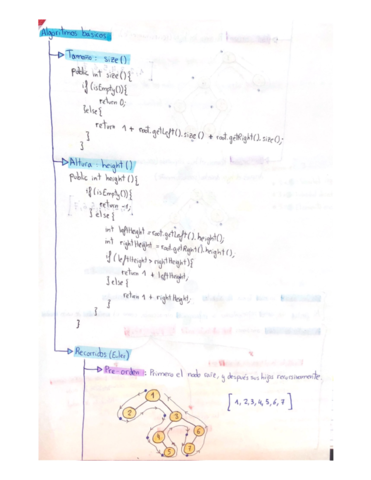 Algoritmos básicos:
Tamaño: size()
public int size(){
if (isEmpty()){
return 0;
}else{
return 1 + root.getLeft().size() + root.getRight().size();
}
}
Altura: height()
public int height(){
if (isEmpty()){
return -1;
} else {
int leftHeight = root.getLeft().height();
int rightHeight = root.getRight().height();
if (leftHeight > rightHeight){
return 1 + leftHeight;
} else {
return 1 + rightHeight;
}
}
}
Recorridos
Pre orden: Primero el nodo raíz, y después sus hijos recursivamente.
1
2
3
4
5
6
7
[1, 2, 3, 4, 5, 6, 7]